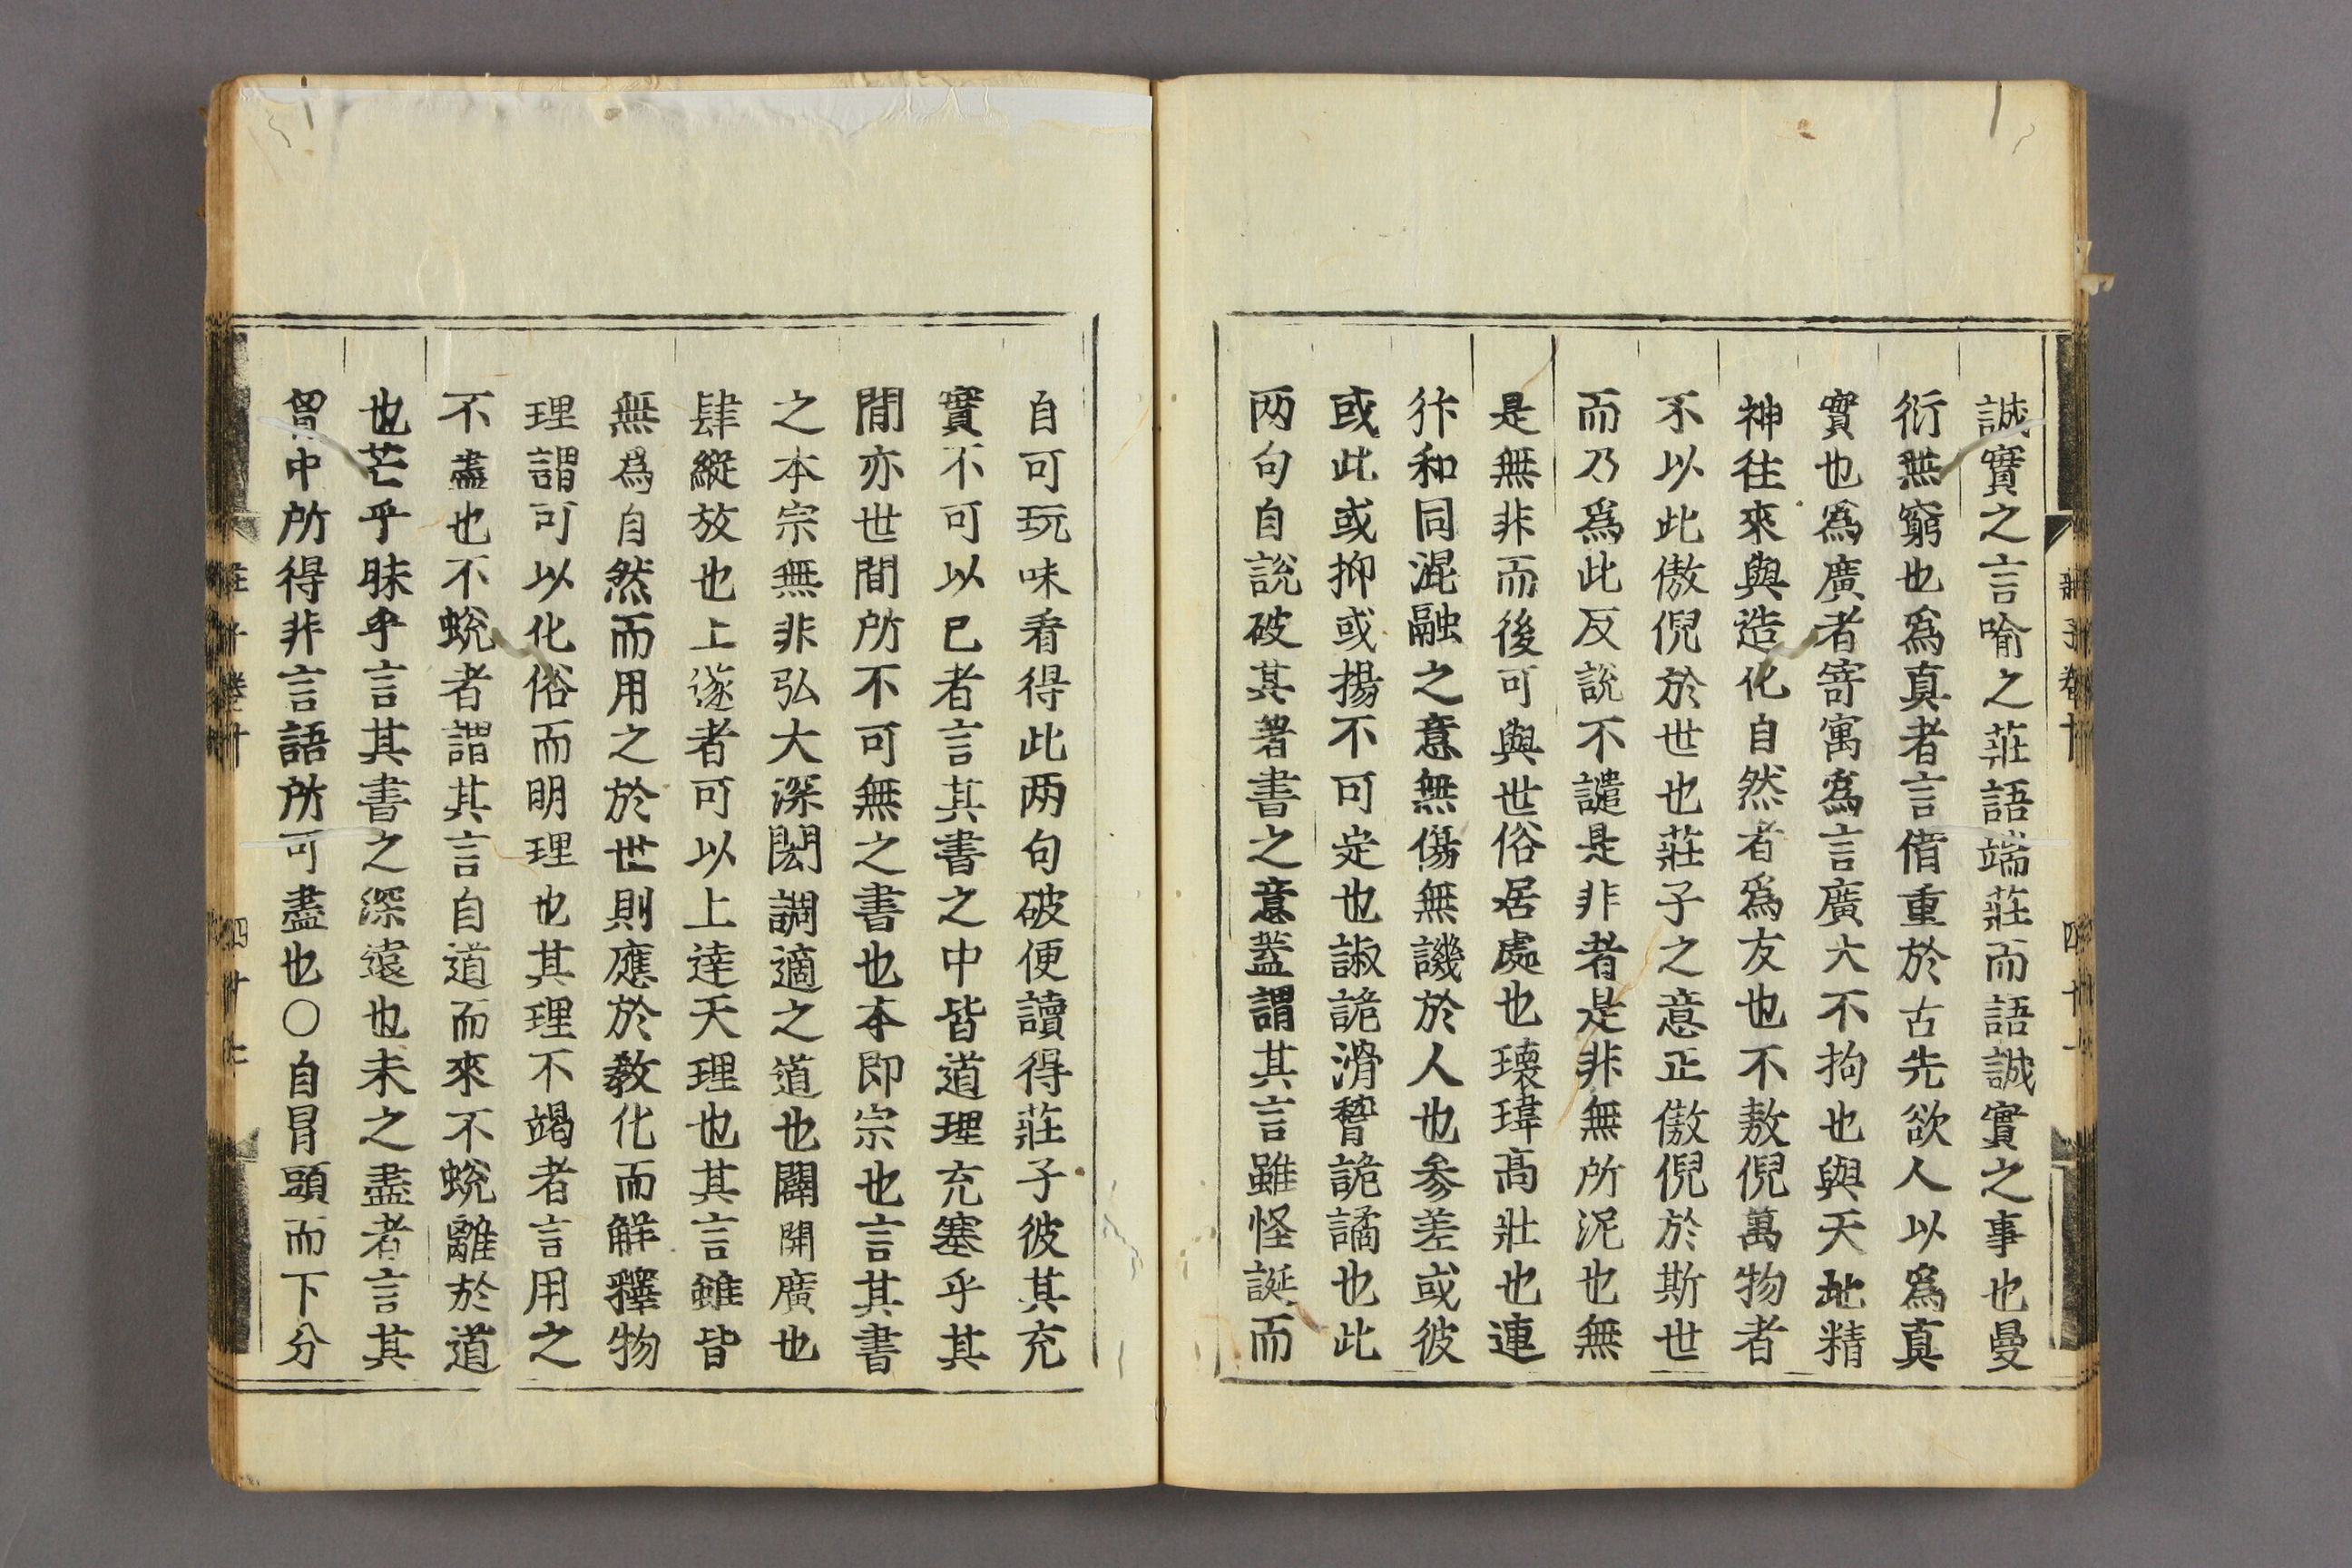 誠實之言喻之莊語端莊而語誠實之事也曼
衍無窮也爲真者言借重於古先欲人以爲真
實也爲廣者寄寓爲言廣大不拘也與天地精
神往來與造化自然者爲友也不敖倪萬物者
不以此傲倪於世也莊子之意正傲倪於斯世
而乃爲此反說不譴是非者是非無所泥也無
是無非而後可與世俗居處也瓌瑋高壯也連
犿和同混融之意無傷無譏於人也参差或彼
或此或抑或揚不可定也諔詭滑稽詭譎也此
两句自說破其著書之意蓋謂其言雖怪誕而
自可玩味看得此两句破便讀得莊子彼其充
實不可以已者言其書之中皆道理充塞乎其
間亦世間所不可無之書也本即宗也言其書
之本宗無非弘大深閎調適之道也闢開廣也
肆縱放也上遂者可以上達天理也其言雖皆
無爲自然而用之於世則應於教化而解釋物
理謂可以化俗而明理也其理不竭者言用之
不盡也不蛻者謂其言自道而來不蛻離於道
也芒乎昧乎言其書之深遠也未之盡者言其
胷中所得非言語所可盡也○自冒頭而下分
莊子卷十